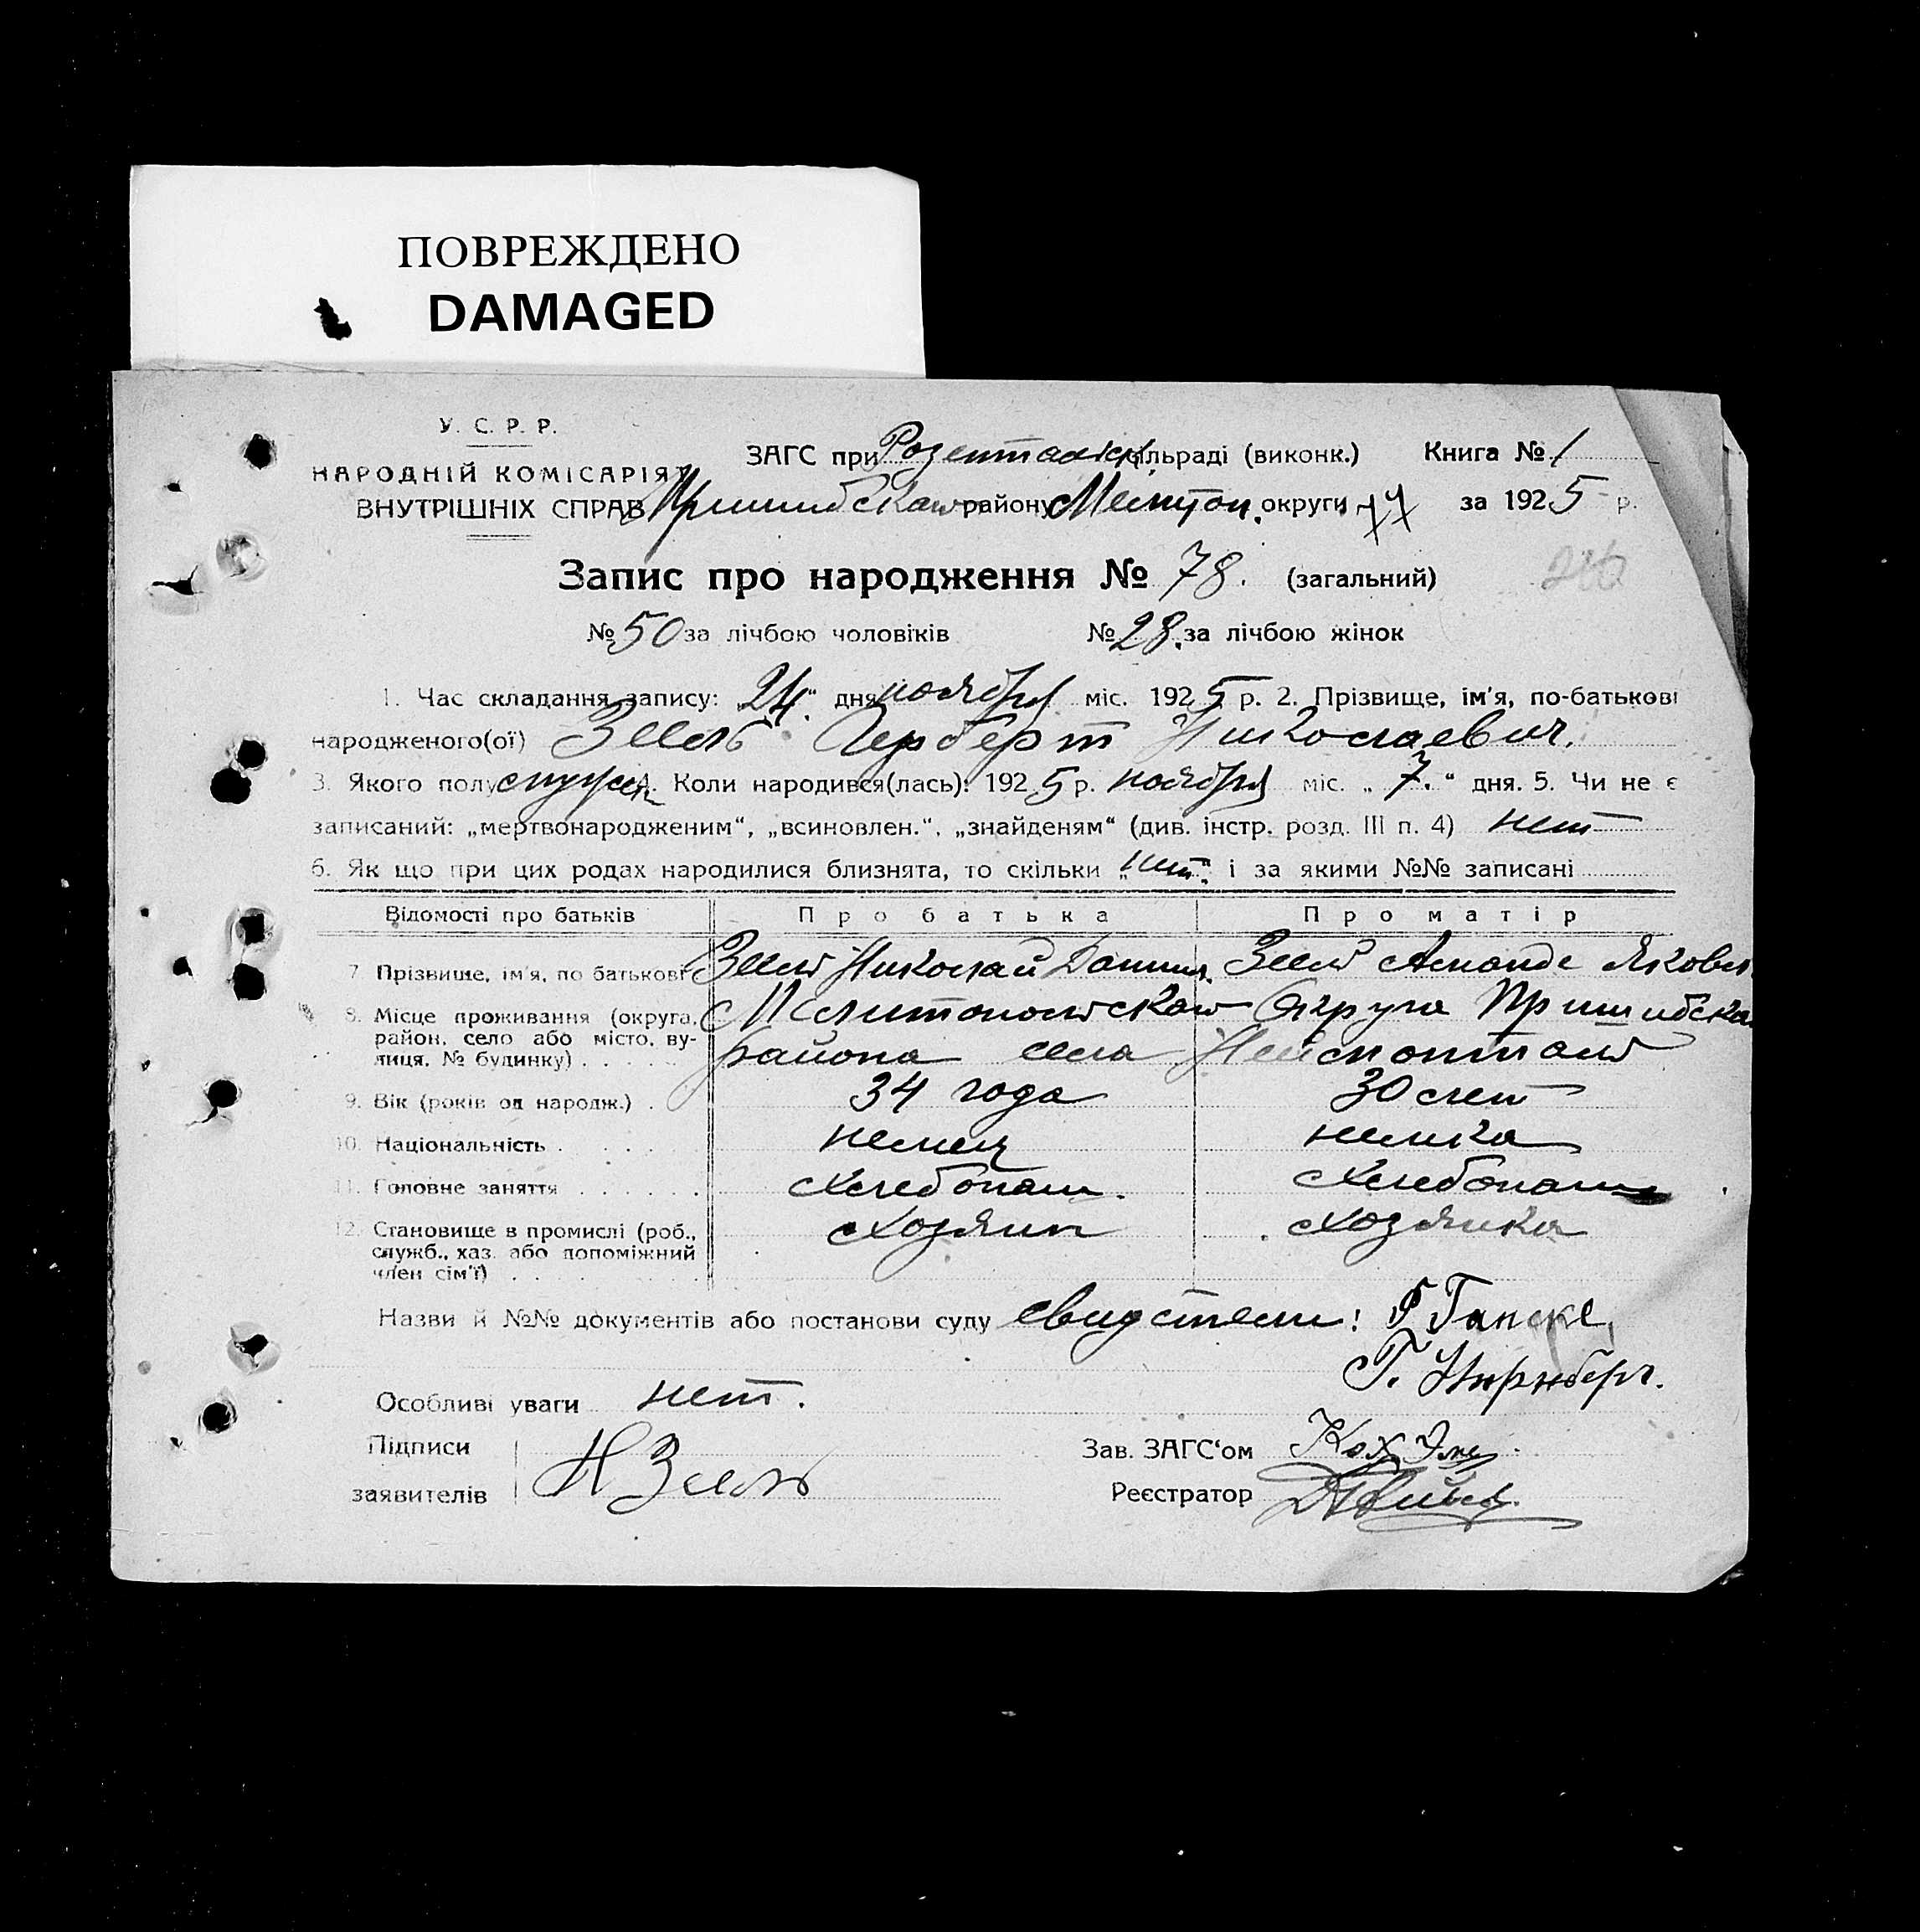 ПОВРЕЖДЕНО
DAMAGED
У. С. Р. Р.
НАРОДНІЙ КОМІСАРІЯТ
ВНУТРІШНІХ СПРАВ
ЗАГС при Розентальск. сільраді (виконк.) Книга № 1
Пришибскаго району Мелитоп. округи за 1925 р.
Запис про народження № 78. (загальний)
№ 50 за лічбою чоловіків № 28. за лічбою жінок
1. Час складання запису: 24. дня ноября міс. 1925 р. 2. Прізвище, ім'я, по-батькові
народженого(ої) Зеель Герберт Николаевич.
3. Якого полу мужск. 4. Коли народився(лась): 1925 р. ноября міс. „ 7. “ дня. 5. Чи не є
записаний: „мертвонародженим“, „всиновлен.“, „знайденям“ (див. інстр. розд. III п. 4) нет
6. Як що при цих родах народилися близнята, то скільки „нет“ і за якими №№ записані
Відомості про батьків Про батька Про матір
7. Прізвище, ім'я, по батькові Зеель Николай Данил. Зеель Аманде Яковл.
8. Місце проживання (округа, район, село або місто, вулиця, № будинку) Мелитопольская Округа Пришибска
района села Неймонталь
9. Вік (років од народж.) 34 года 30 лет
10. Національність немец немка
11. Головне заняття хлебопаш. хлебопаш
12. Становище в промислі (роб., служб., хаз. або допоміжний член сім'ї) хозяин хозяйка
Назви й №№ документів або постанови суду свидетели: Р Ганске,
Г. Нирнберг.
Особливі уваги нет.
Підписи
заявителів Н Зеель
Зав. ЗАГС‘ом Кох
Реєстратор